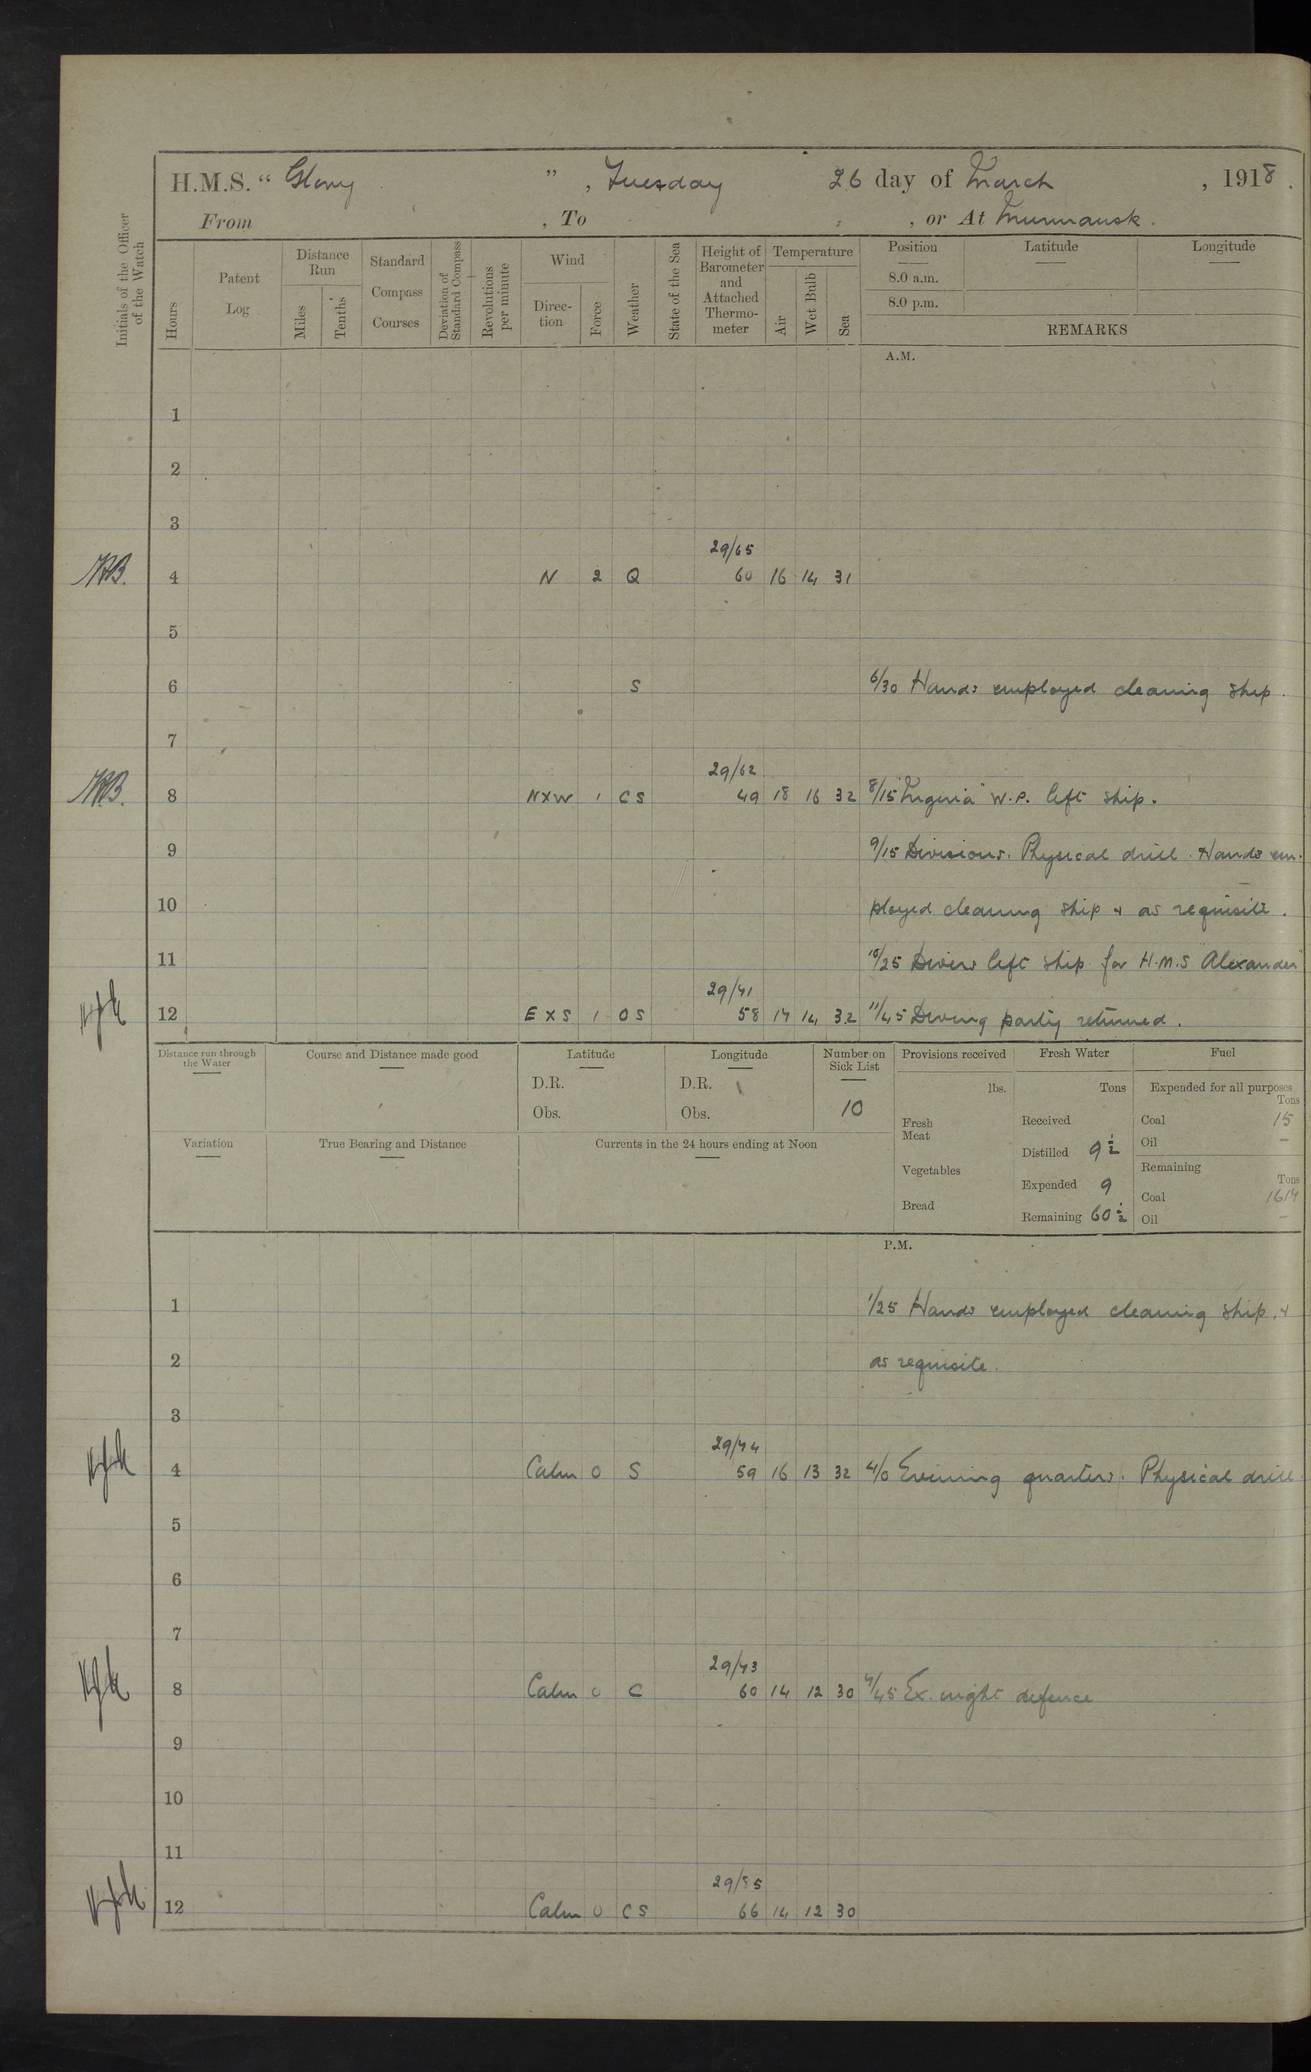 H.M.S. “ Glory ” , Tuesday 26 day of March , 1918 .
From , To , or At Murmansk .
Initials of the Officer of the Watch
Hours
Patent Log
Distance Run
Miles
Tenths
Standard Compass Courses
Deviation of Standard Compass
Revolutions per minute
Wind
Direc-tion
Force
Weather
State of the Sea
Height of Barometer and Attached Thermo-meter
Temperature
Air
Wet Bulb
Sea
Position Latitude Longitude
8.0 a.m.
8.0 p.m.
REMARKS
A.M.
1
2
3
29/65
4 N 2 Q 60 16 14 31
5
6 S 6/30 Hands employed cleaning ship.
7
29/62
8 N×W 1 CS 49 18 16 32 8/15 W.P. left ship.
9 9/15 Divisions. Physical drill. Hands em-
10 ployed cleaning ship & as requisite.
11 10/25 Divers left ship for H.M.S "Alexander"
29/41
12 E×S 1 OS 58 17 14 32 11/45 Diving party returned.
Distance run through the Water
Course and Distance made good
Latitude
D.R.
Obs.
Longitude
D.R.
Obs.
Number on Sick List
10
Provisions received
lbs.
Fresh Meat
Vegetables
Bread
Fresh Water
Tons
Received
Distilled 9½
Expended 9
Remaining 60½
Fuel
Expended for all purposes
Tons
Coal 15
Oil –
Remaining
Tons
Coal 1617
Oil –
Variation
True Bearing and Distance
Currents in the 24 hours ending at Noon
P.M.
1 1/25 Hands employed cleaning ship. &
2 as requisite.
3
29/44
4 Calm 0 S 59 16 13 32 4/0 Evening quarters. Physical drill.
5
6
7
29/43
8 Calm 0 C 60 14 12 30 7/45 Ex. night defence
9
10
11
29/55
12 Calm 0 CS 66 14 12 30